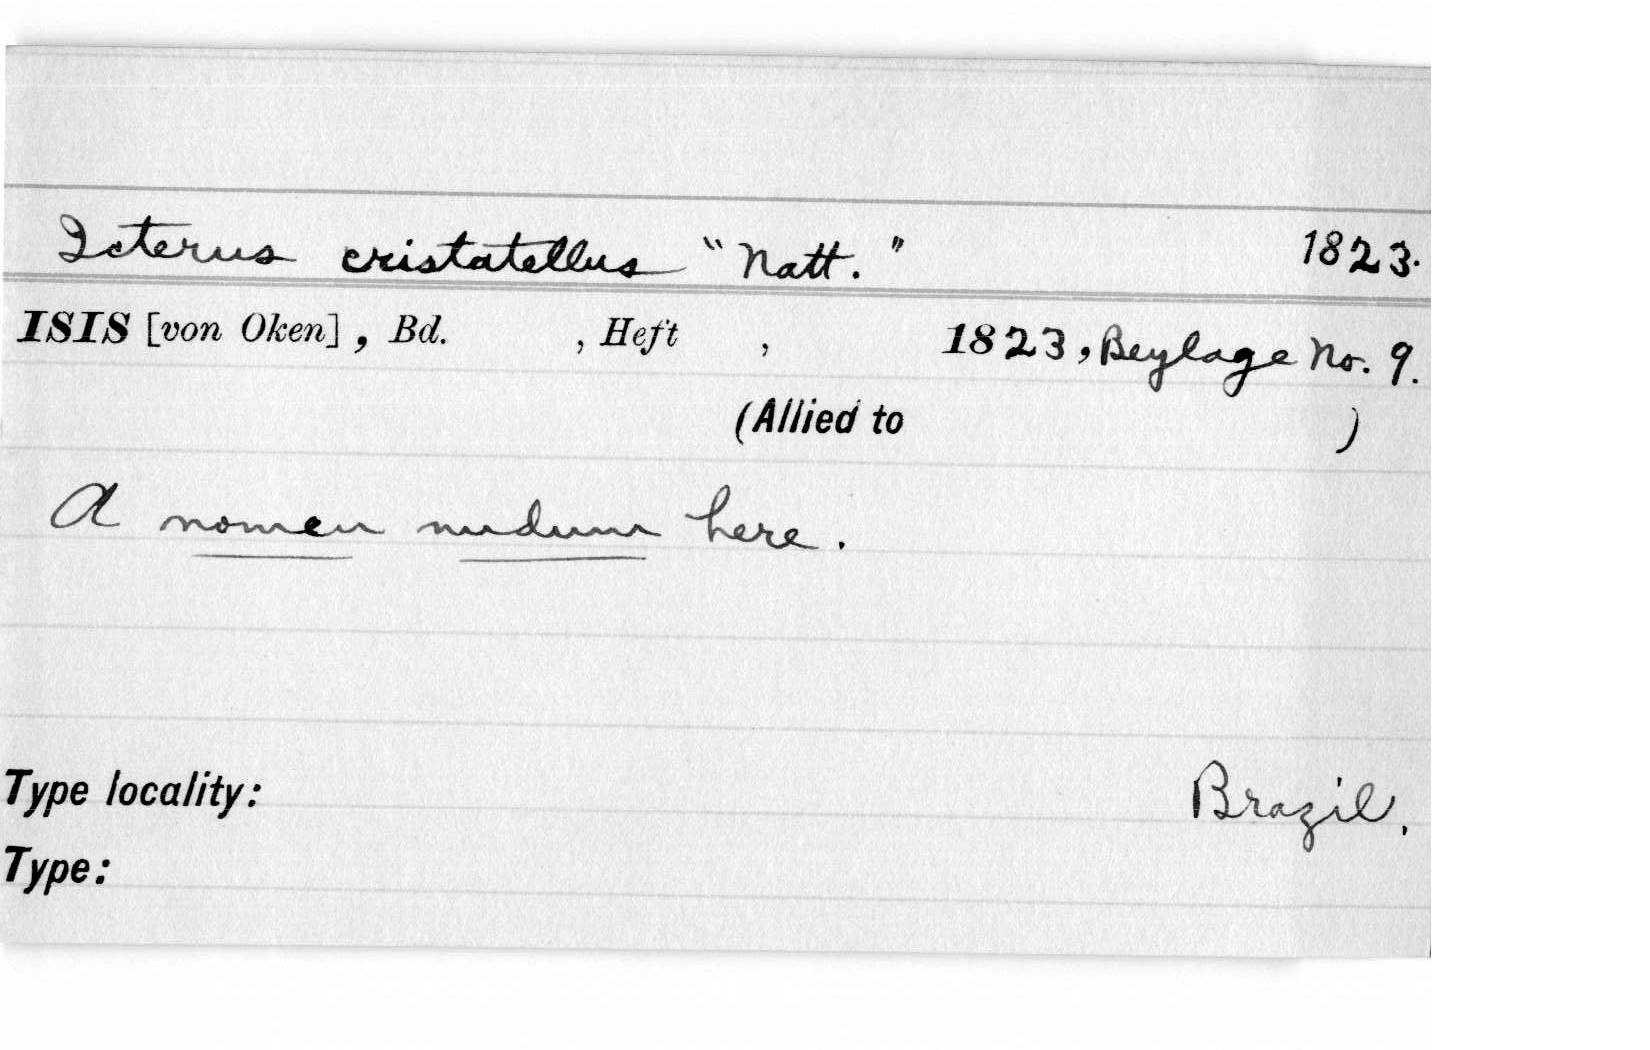 Icterus cristatellus "Natt." 1823.
ISIS [von Oken], Bd. , Heft , 1823, Beylage No. 9.
(Allied to )
A nomen nudum here.
Type locality: Brazil.
Type: